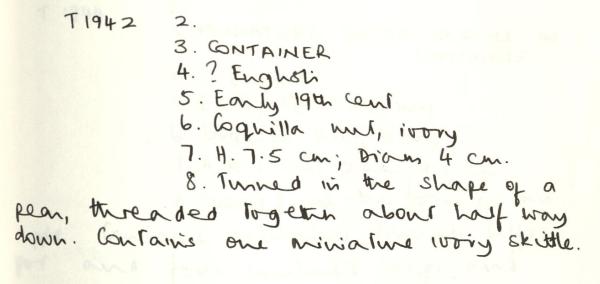 T1942 2.
3. CONTAINER
4. ? English
5. Early 19th cent
6. Coquilla nut, ivory
7. H. 7.5 cm; Diam 4 cm.
8. Turned in the shape of a
pear, threaded together about half way
down. Contains one miniature ivory skittle.